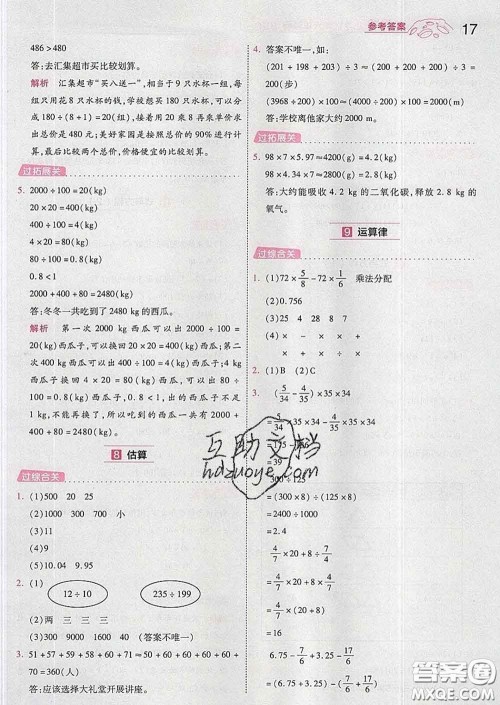 参考答案 17
486＞480
答:去汇集超市买比较划算。
解析 汇集超市“买八送一”,相当于 9 只水杯一组,每
组只用花 8 只水杯的钱,学校想买 180 只水杯,可以
分成 180÷(8+1)=20(组),接着用 20 乘 8 再乘单价求
出总价是 480 元;美好家园是按照总价的 90%进行计
算。最后比较两个总价,价格便宜的比较划算。
过拓展关
5. 2000÷100=20(kg)
20×20=400(kg)
400÷100=4(kg)
4×20=80(kg)
80÷100=0.8(kg)
0.8<1
2000+400+80=2480(kg)
答:冬冬一共吃了 2480 kg 的西瓜。
解析 第一次 2000 kg 西瓜可以出 2000÷100=
20(kg)西瓜子;可以换回 20×20=400(kg)西瓜;第二次
400 kg 西瓜可以出 400÷100=4(kg)西瓜子,可以
换回西瓜 4×20=80(kg)西瓜;第三次 80 kg 西瓜可以
出 80÷100=0.8(kg)西瓜子,因为 0.8 kg<1 kg,
不能再换了,所以吃到的西瓜一共有 2000+400+
80=2480(kg)。
8 估算
过综合关
1. (1)500 20 25
(2)1000 300 700 小
(3)11
(4)9
(5)10.04 9.95
2. (1)
12÷10 235÷199
(2)两 三 三 三
(3)300 9000 1600 40 (答案不唯一)
3. 51+57+59+58+60+71≈50+60+60+60+60+
70=360(人)
答:应该选择大礼堂开展讲座。
4. 答案不唯一,如:
(201+198+203)÷3≈(200+200+200)÷3=
200(步)
(3968+200)×100≈(4000÷200)×100=
2000(m)
答:学校离他家大约 2000 m。
过拓展关
5. 98×7×5.95≈4200(g)=4.2(kg)
98×7×4.31≈2800(g)=2.8(kg)
答:大约能吸收 4.2 kg 的二氧化碳,释放 2.8 kg 的
氧气。
9 运算律
过综合关
1. (1)72×5/8-72×1/6 乘法分配
(2)0.756
(3)25 4 28 8 7
(4)× × × ×
2. (1)B (2)C
3. (5/34-4/35)×35×34
=5/34×35×34-4/35×35×34
=175-136
=39
300÷125
=(300×8)÷(125×8)
=2400÷1000
4/7×20+8÷7/4
=4/7×20+8×4/7
=4/7×(20+8)
=16
6.75-5/7+3.25-2/7
=(6.75+3.25)-(5/7+2/7)
互助文档
hdzuoye.com
答案圈
MXQE.COM